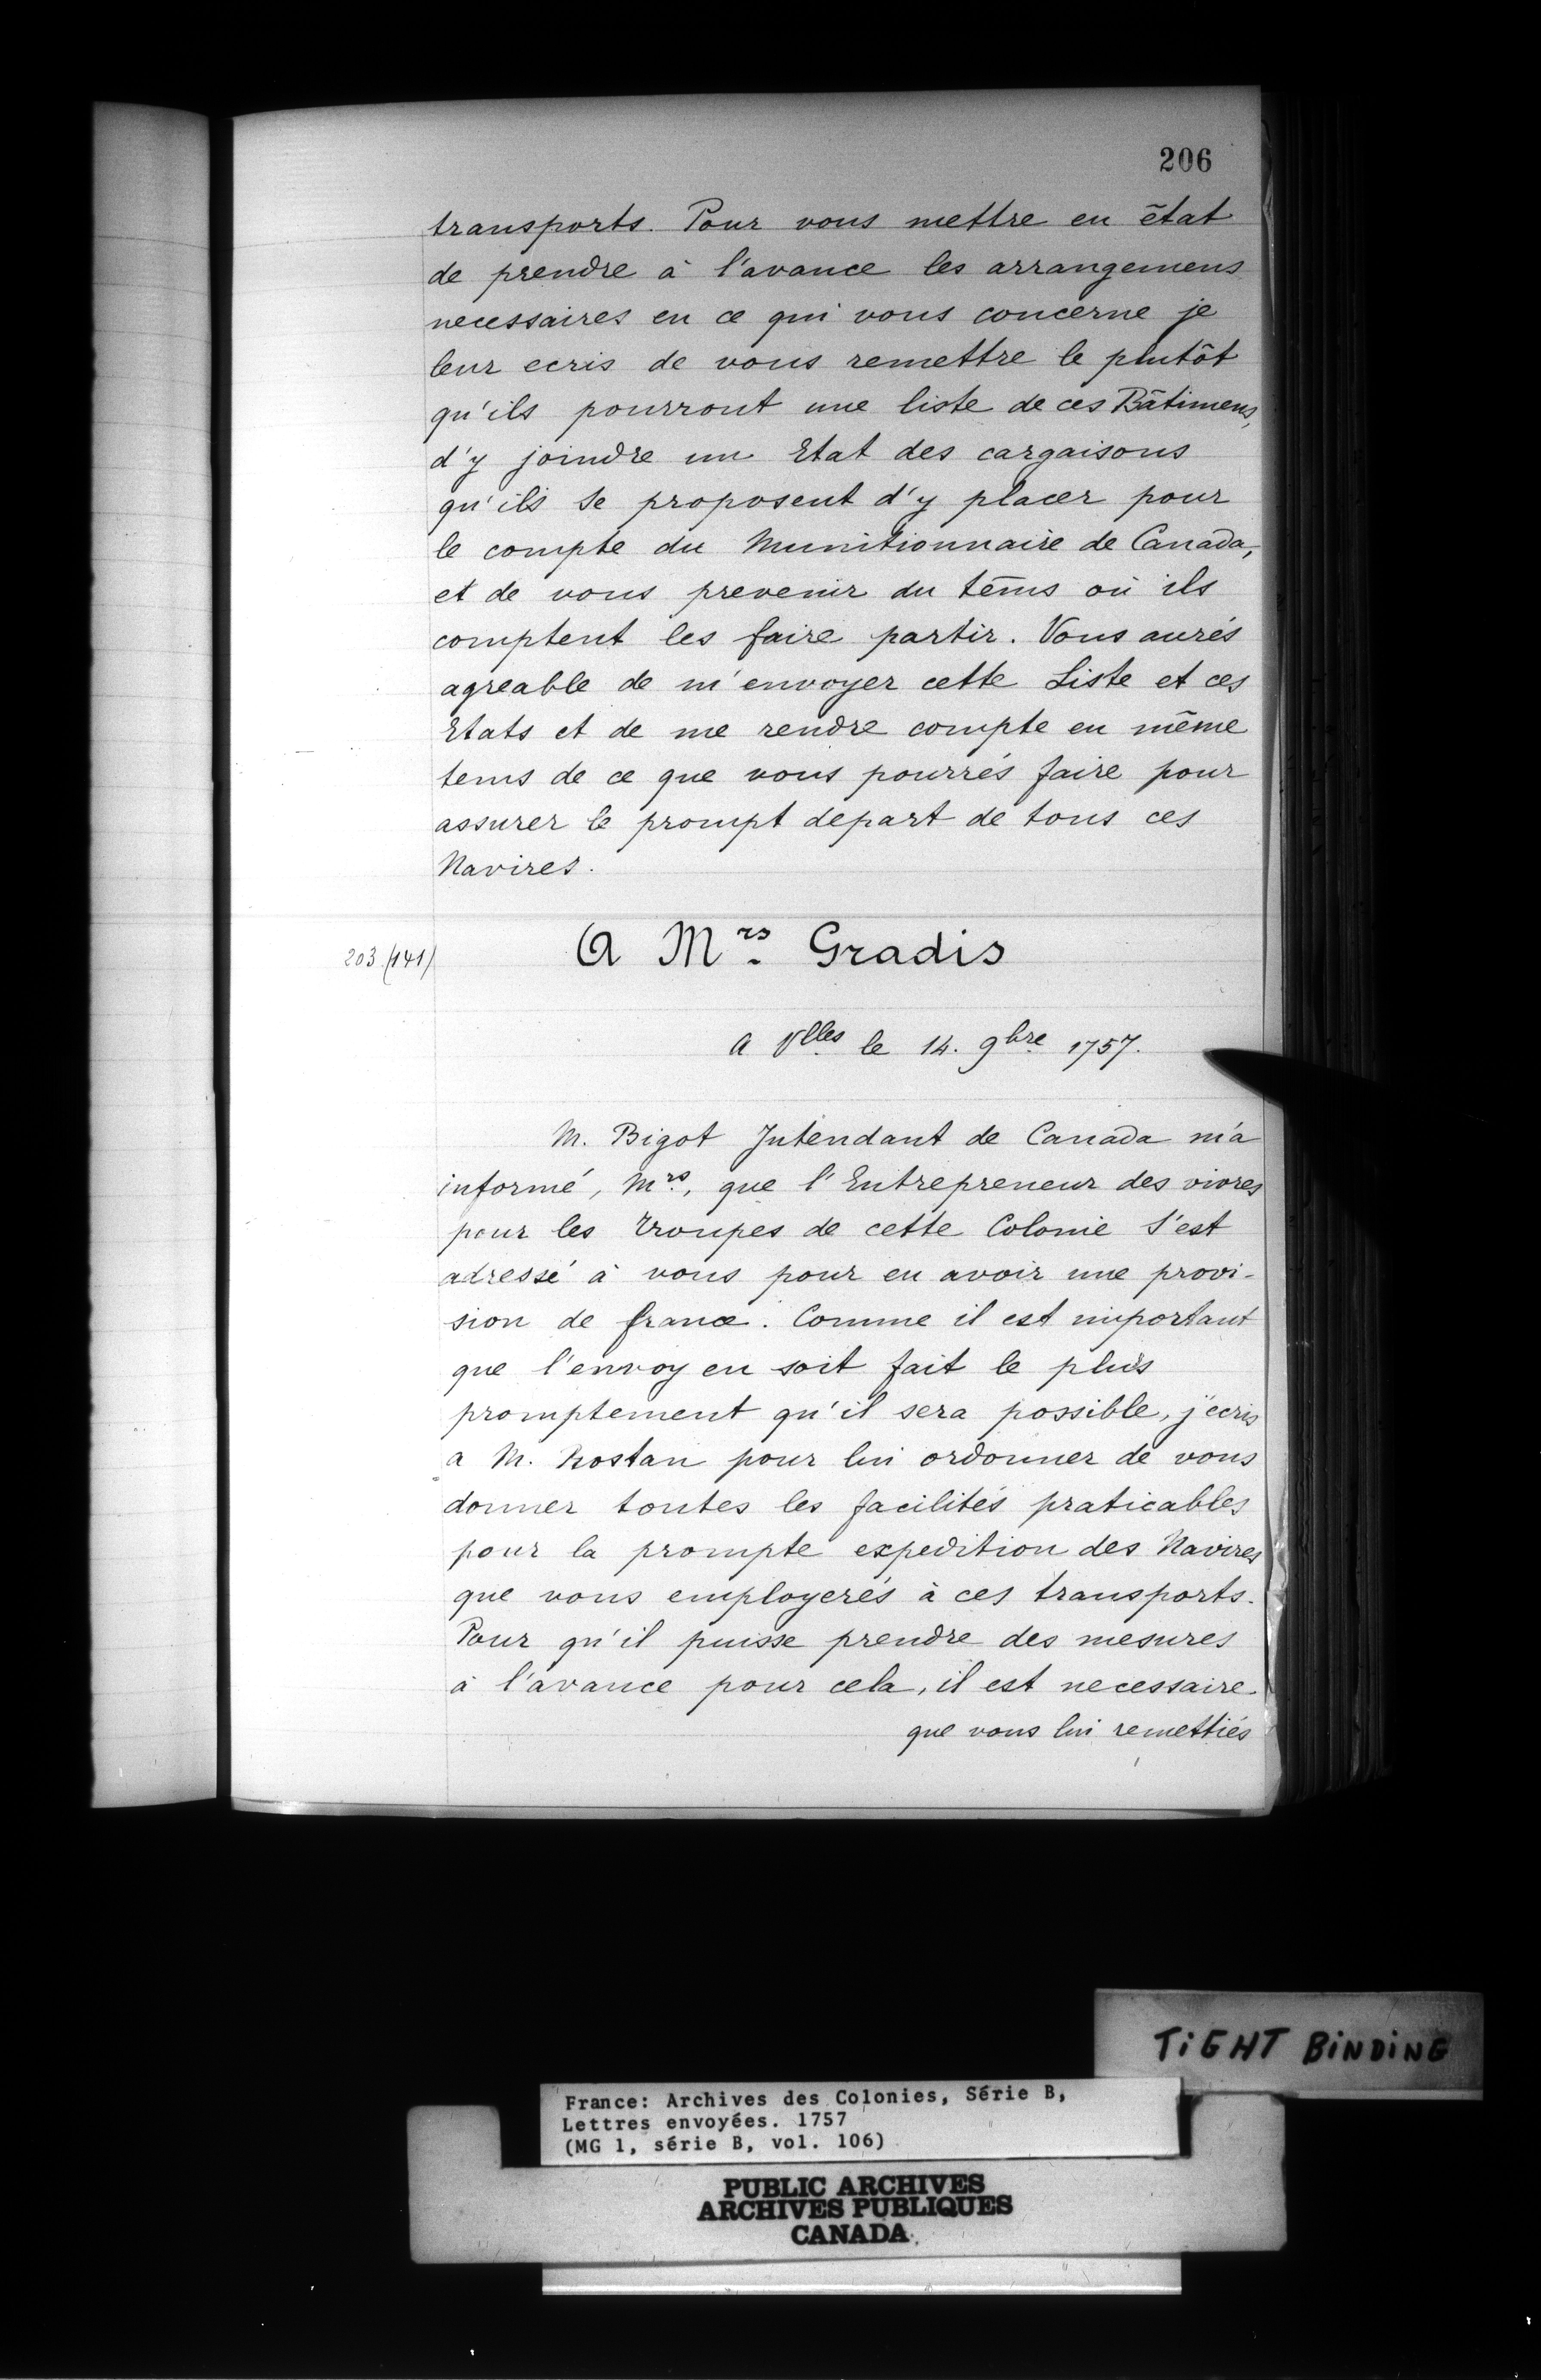 206
transports. Pour vous mettre en état
de prendre à l'avance les arrangemens
necessaires en ce qui vous concerne je
leur ecris de vous remettre le plutôt
qu'ils pourront une liste de ces Bâtimens,
d'y joindre un Etat des cargaisons
qu'ils se proposent d'y placer pour
le compte du Munitionnaire de Canada,
et de vous prevenir du tems où ils
comptent les faire partir. Vous aurés
agreable de m'envoyer cette Liste et ces
Etats et de me rendre compte en même
tems de ce que vous pourrés faire pour
assurer le prompt depart de tous ces
Navires.
203 (141)
A Mrs. Gradis
a Vlles le 14. 9bre 1757.
M. Bigot Intendant de Canada m'a
informé, Mrs., que l'Entrepreneur des vivres
pour les Troupes de cette Colonie s'est
adressé à vous pour en avoir une provi-
sion de france. Comme il est important
que l'envoy en soit fait le plus
promptement qu'il sera possible, j'ecris
a M. Rostan pour lui ordonner de vous
donner toutes les facilités praticables
pour la prompte expedition des Navires
que vous employerés à ces transports.
Pour qu'il puisse prendre des mesures
à l'avance pour cela, il est necessaire
que vous lui remettiés
TiGHT BiNDiNG
France: Archives des Colonies, Série B,
Lettres envoyées. 1757
(MG 1, série B, vol. 106)
PUBLIC ARCHIVES
ARCHIVES PUBLIQUES
CANADA